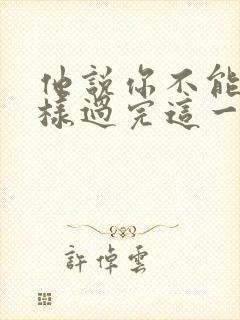 他說你不能
樣過完這一
許倬雲